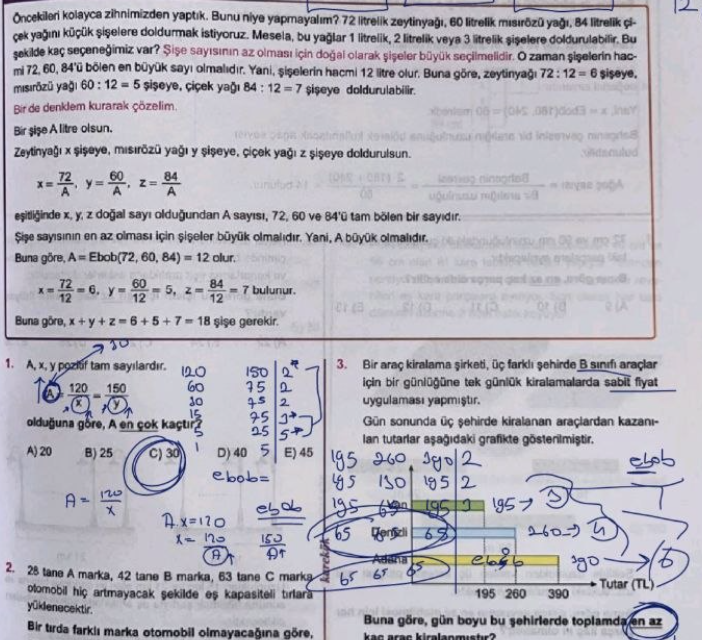 Öncekileri kolayca zihnimizden yaptık. Bunu niye yapmayalım? 72 litrelik zeytinyağı, 60 litrelik mısırözü yağı, 84 litrelik çi-
çek yağını küçük şişelere doldurmak istiyoruz. Mesela, bu yağlar 1 litrelik, 2 litrelik veya 3 litrelik şişelere doldurulabilir. Bu
şekilde kaç seçeneğimiz var? Şişe sayısının az olması için doğal olarak şişeler büyük seçilmelidir. O zaman şişelerin hac-
mi 72, 60, 84'ü bölen en büyük sayı olmalıdır. Yani, şişelerin hacmi 12 litre olur. Buna göre, zeytinyağı 72 : 12 = 6 şişeye,
mısırözü yağı 60 : 12 = 5 şişeye, çiçek yağı 84 : 12 = 7 şişeye doldurulabilir.
Bir de denklem kurarak çözelim.
Bir şişe A litre olsun.
Zeytinyağı x şişeye, mısırözü yağı y şişeye, çiçek yağı z şişeye doldurulsun.
x = 72/A, y = 60/A, z = 84/A
eşitliğinde x, y, z doğal sayı olduğundan A sayısı, 72, 60 ve 84'ü tam bölen bir sayıdır.
Şişe sayısının en az olması için şişeler büyük olmalıdır. Yani, A büyük olmalıdır.
Buna göre, A = Ebob(72, 60, 84) = 12 olur.
x = 72/12 = 6, y = 60/12 = 5, z = 84/12 = 7 bulunur.
Buna göre, x + y + z = 6 + 5 + 7 = 18 şişe gerekir.
30
1. A, x, y pozitif tam sayılardır.
A = 120/x = 150/y
olduğuna göre, A en çok kaçtır?
A) 20 B) 25 C) 30 D) 40 E) 45
120 150 2*
60 75 2
30 75 2
15 75 3*
5 25 5*
1 5
ebob=
A = 120/x
A.x=120
x = 120/A
ebob
150/A
2. 28 tane A marka, 42 tane B marka, 63 tane C marka
otomobil hiç artmayacak şekilde eş kapasiteli tırlara
yüklenecektir.
Bir tırda farklı marka otomobil olmayacağına göre,
3. Bir araç kiralama şirketi, üç farklı şehirde B sınıfı araçlar
için bir günlüğüne tek günlük kiralamalarda sabit fiyat
uygulaması yapmıştır.
Gün sonunda üç şehirde kiralanan araçlardan kazanı-
lan tutarlar aşağıdaki grafikte gösterilmiştir.
195 260 390 2
195 130 195 2
195 65 195 3
65 65 65
65 65 65
ebob
195→3
260→4
390→6
Denizli
Adana
ebob
karekök
195 260 390
Tutar (TL)
Buna göre, gün boyu bu şehirlerde toplamda en az
kaç araç kiralanmıştır?